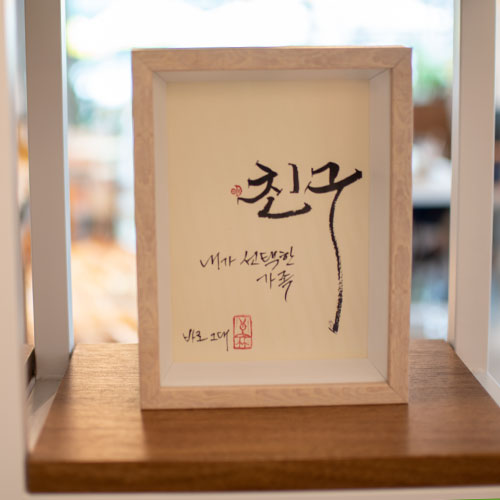 친구
내가 선택한
가족
바로 그대